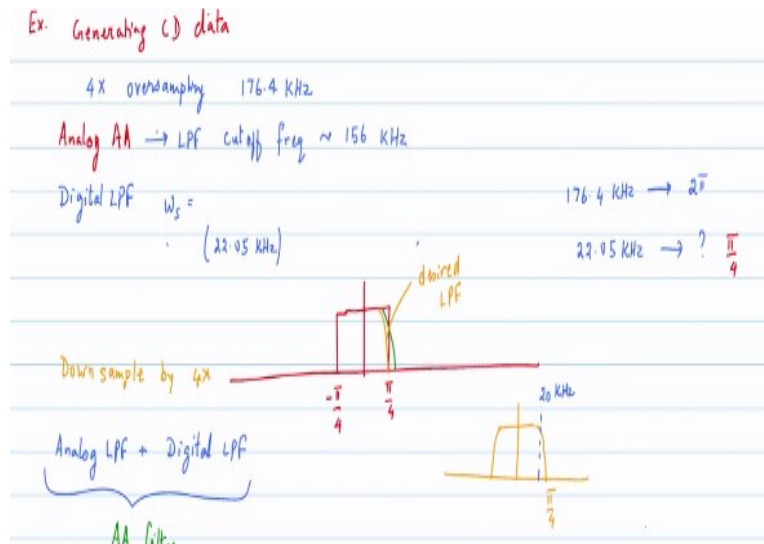 Ex. Generating CD data
4X oversampling 176.4 KHz
Analog AA → LPF cutoff freq ~ 156 KHz
Digital LPF ωs =
176.4 KHz → 2π
(22.05 KHz)
22.05 KHz → ? π/4
desired
LPF
Down sample by 4X
-π/4
π/4
20 KHz
Analog LPF + Digital LPF
AA filter